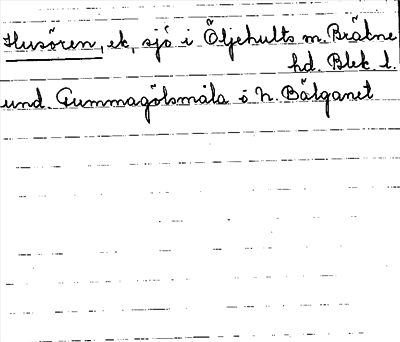 Husören, ek, sjö i Öljehults m. Bräkne
hd. Blek. l.
und. Gummagölsmåla o N. Bälganet